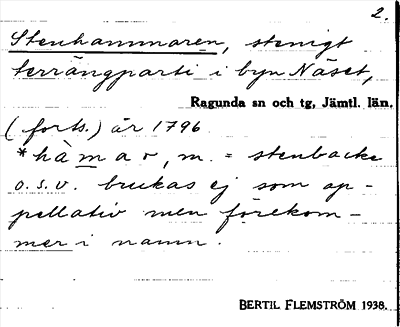 2.
Stenhammaren, stenigt
terrängparti i byn Näset,
Ragunda sn och tg, Jämtl. län.
(forts.) är 1796.
*hàmar, m. = stenbacke
o.s.v. brukas ej som ap-
pellativ men förekom-
mer i namn.
BERTIL FLEMSTRÖM 1938.